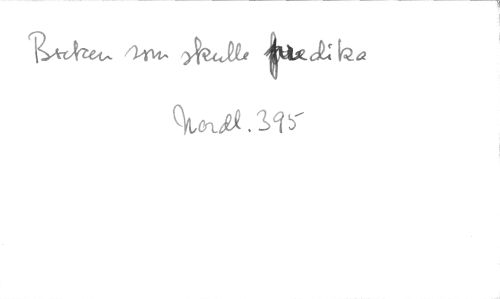 Bocken som skulle predika
Nordl. 395